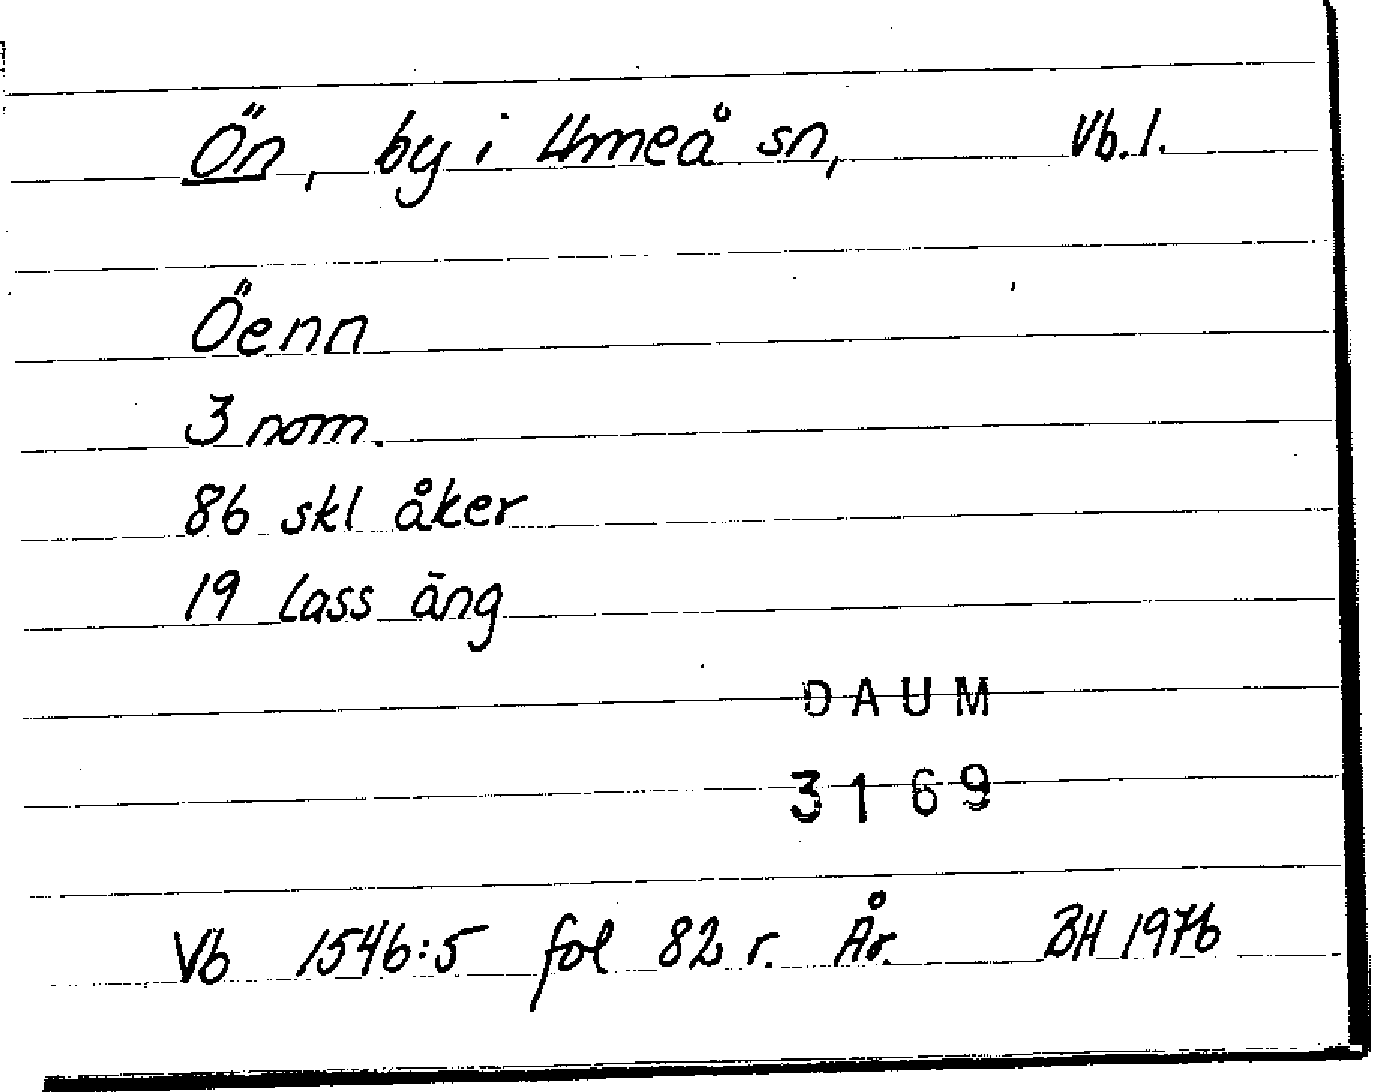 Ön, by i Umeå sn, Vb.l.
Öenn
3 nom.
86 skl åker
19 lass äng
DAUM
3169
Vb 1546:5 fol 82 r. År. BH 1976